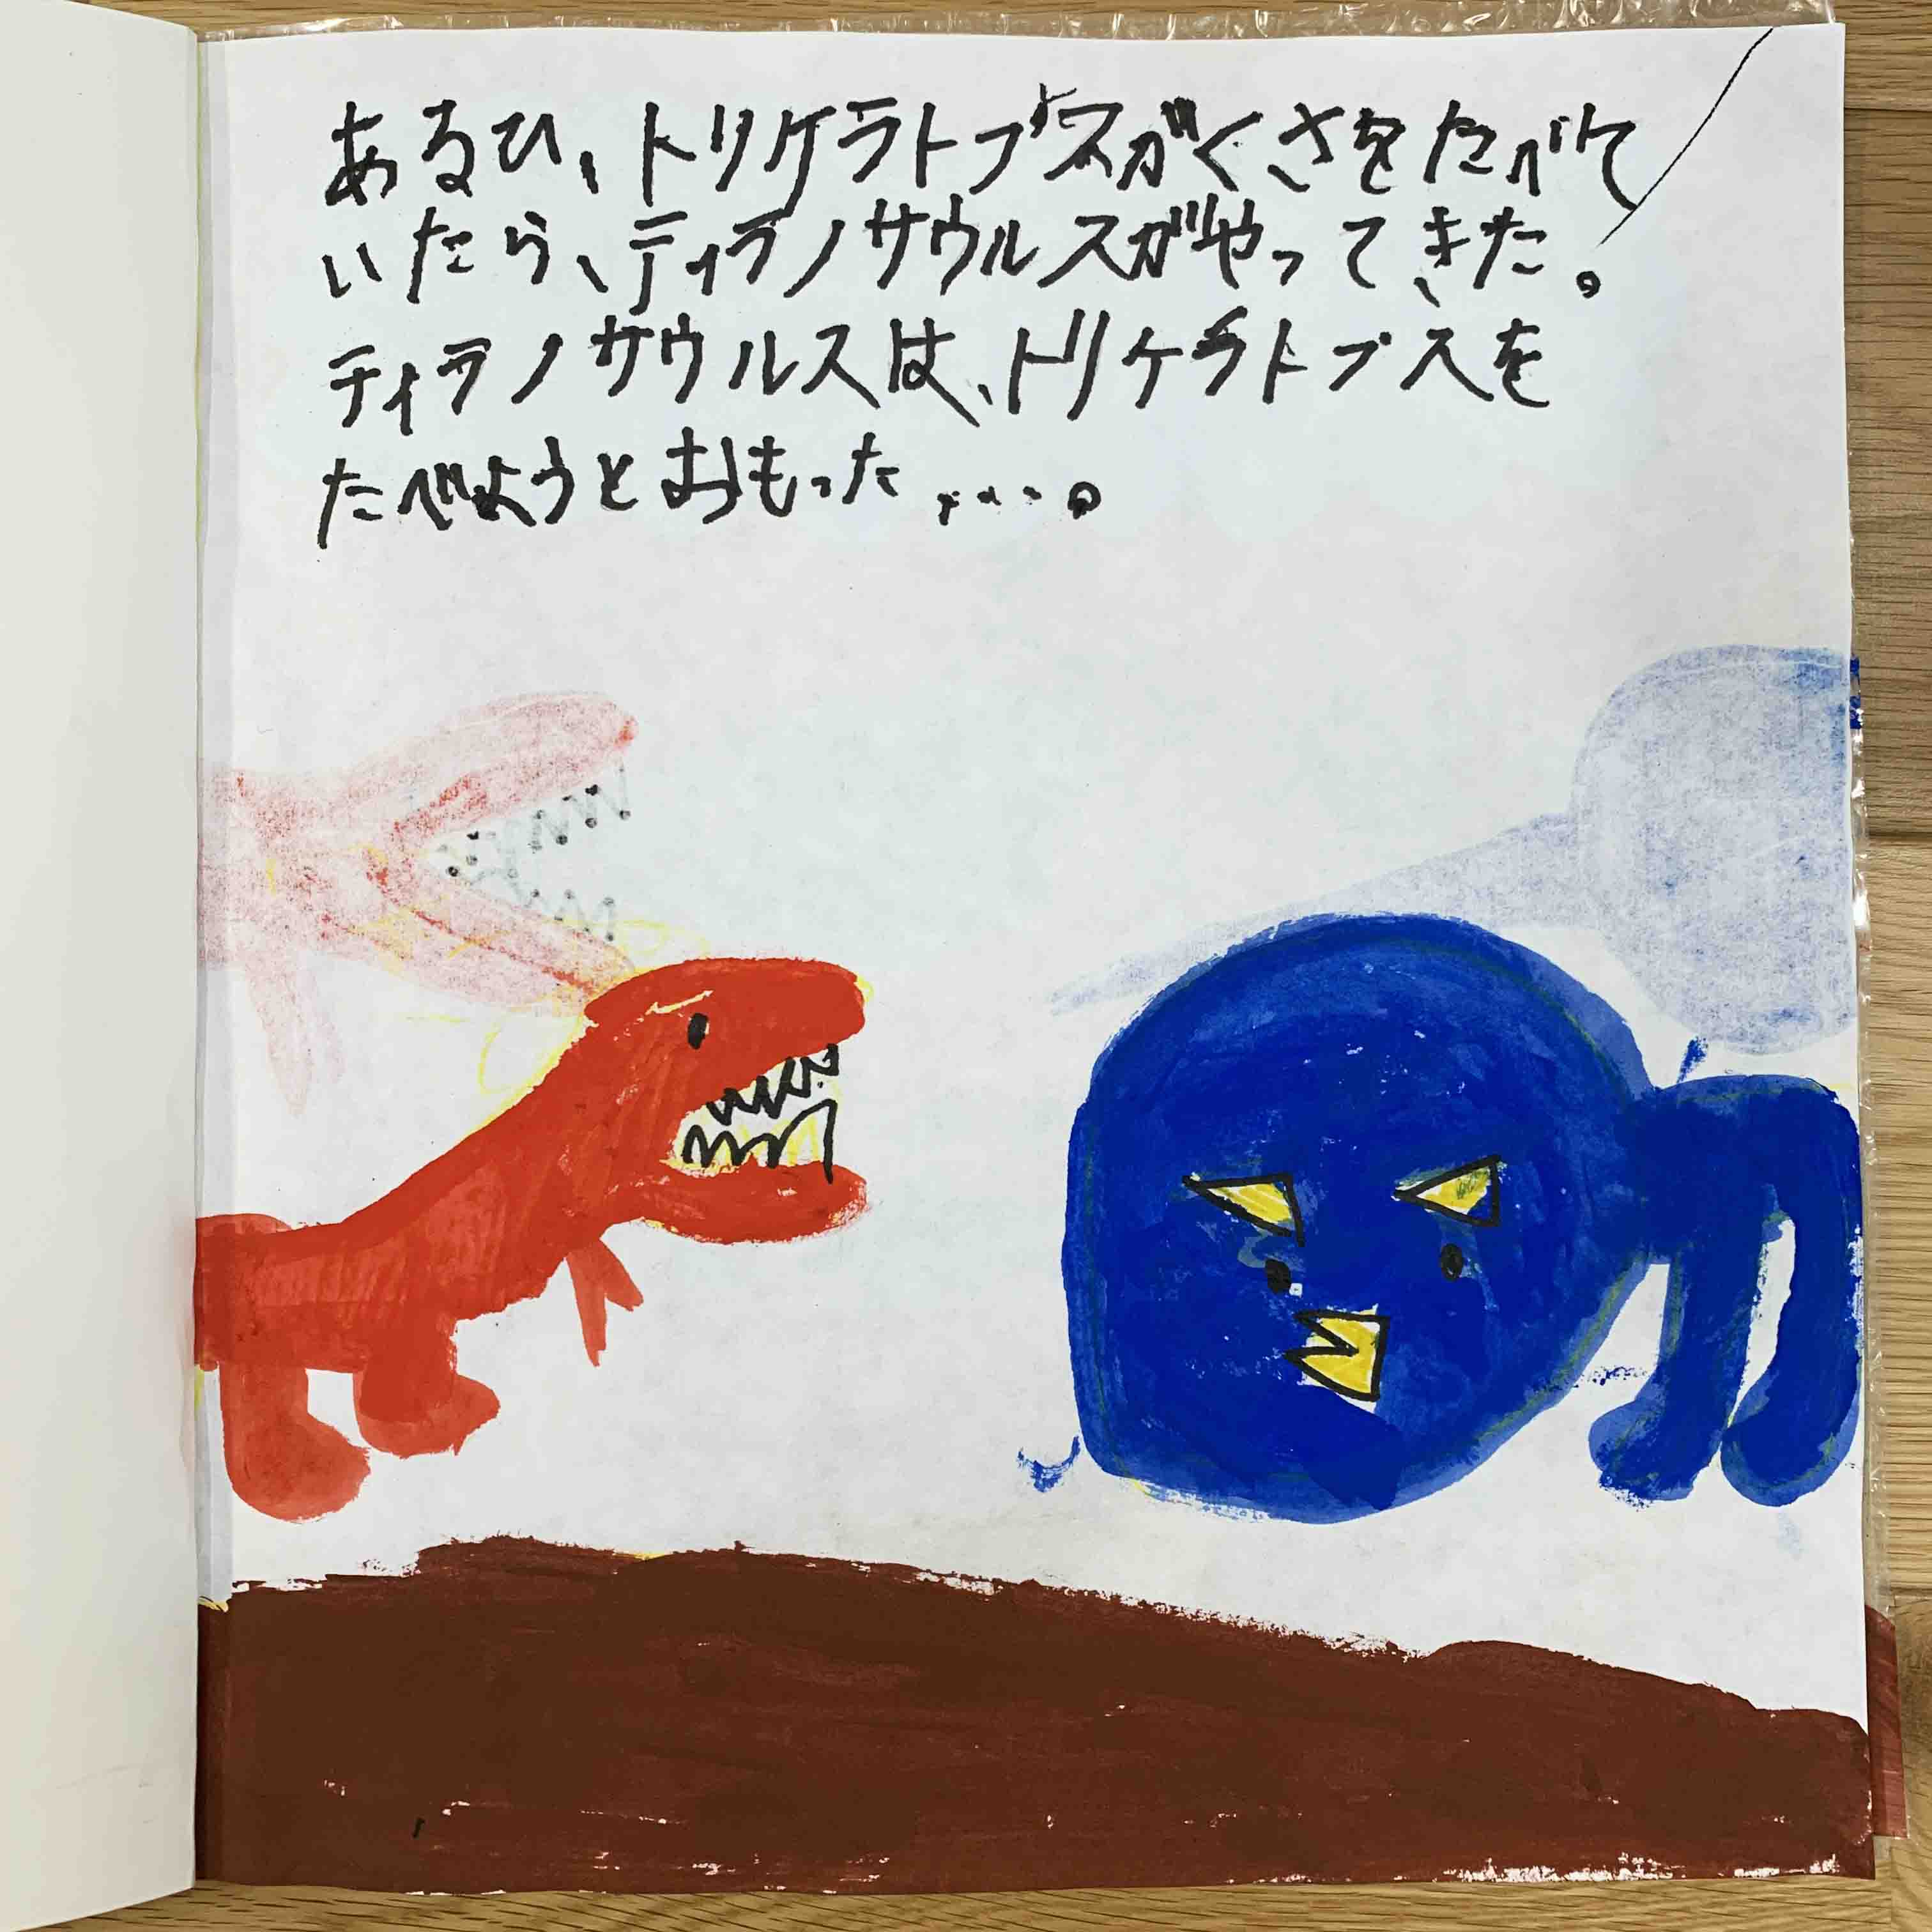 あるひ、トリケラトプスがくさをたべて
いたら、ティラノサウルスがやってきた。
ティラノサウルスは、トリケラトプスを
たべようとおもった....。